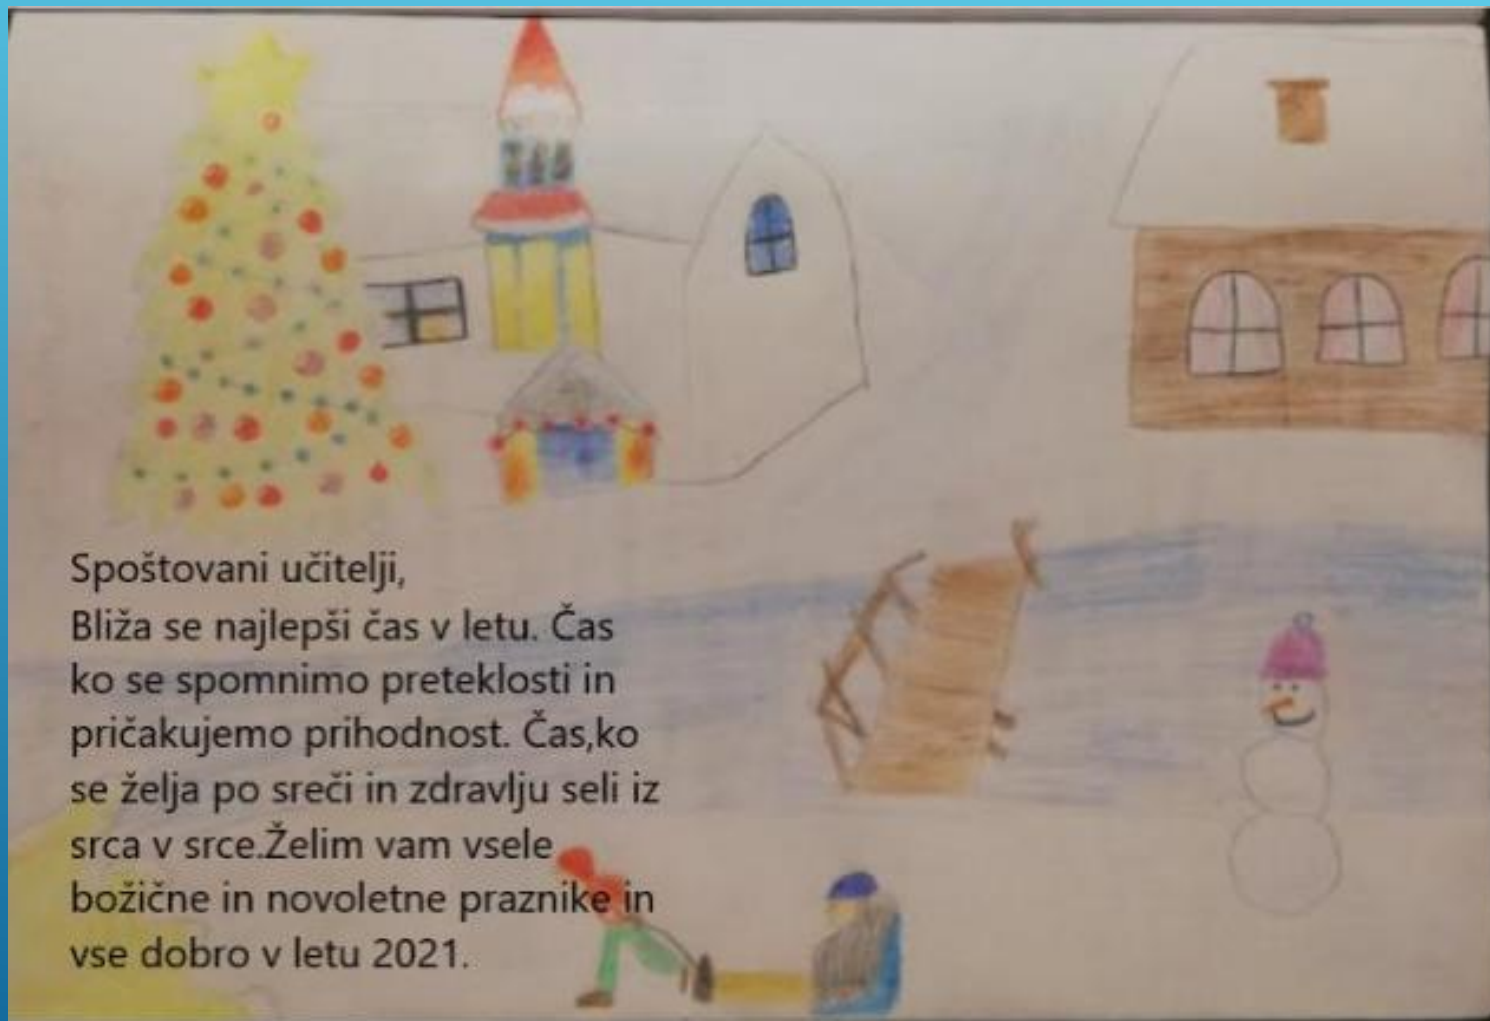 Spoštovani učitelji,
Bliža se najlepši čas v letu. Čas
ko se spomnimo preteklosti in
pričakujemo prihodnost. Čas,ko
se želja po sreči in zdravlju seli iz
srca v srce.Želim vam vsele
božične in novoletne praznike in
vse dobro v letu 2021.